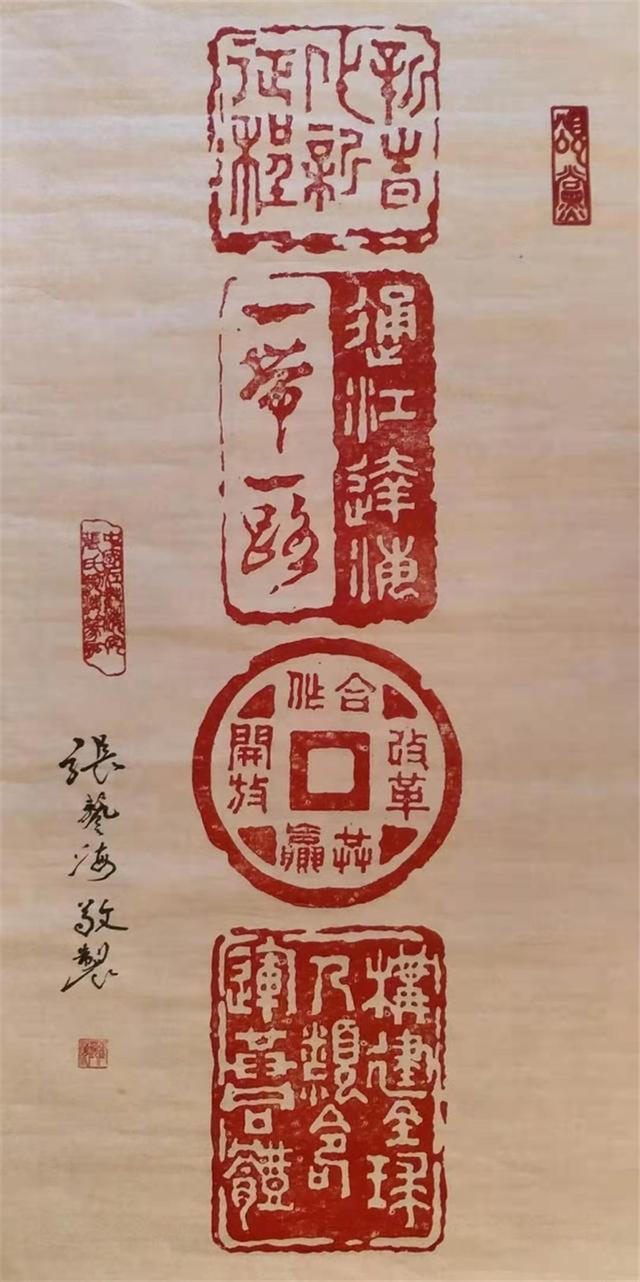 頌黨
新旹
代新
征程
通江達海
一帶一路
改革
開放
合作
共贏
構建全球
人類命
運共同體
張藝海敬製